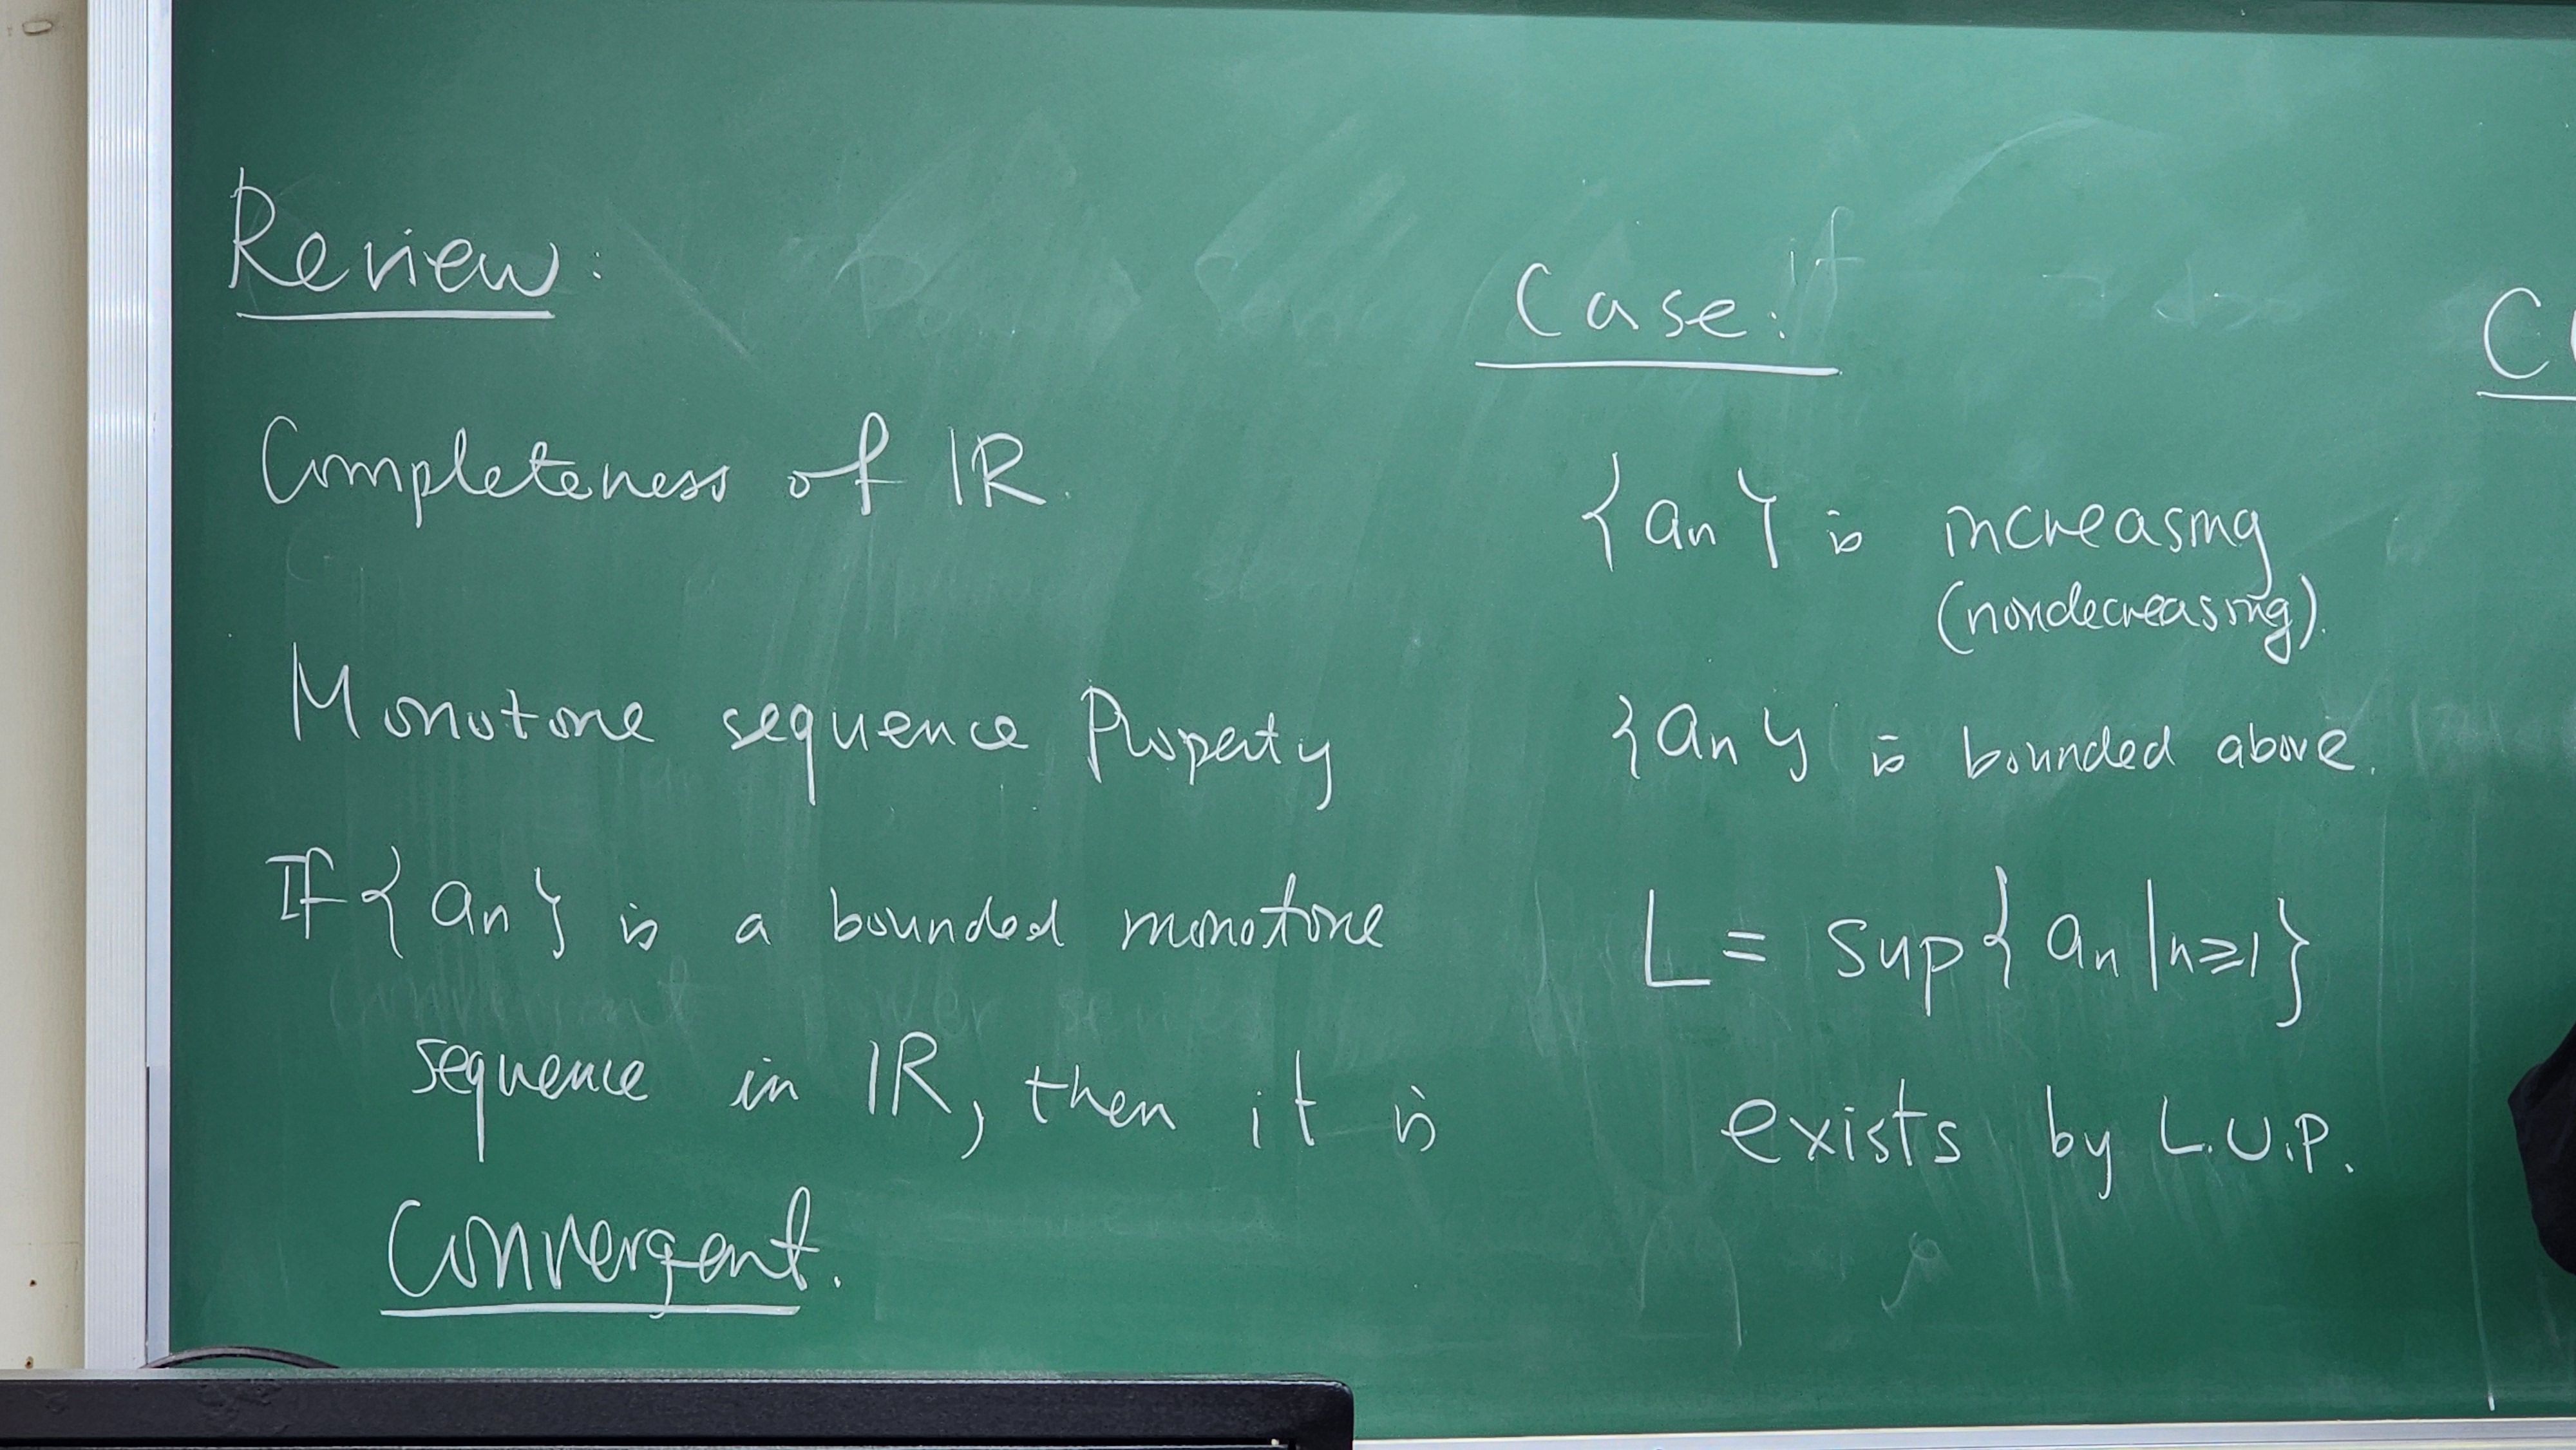 Review:
Completeness of ℝ.
Monotone sequence Property
If {an} is a bounded monotone
sequence in ℝ, then it is
Convergent.
Case:
{an} is increasing
(nondecreasing).
{an} is bounded above.
L = sup{an | n≥1}
exists by L.U.P.